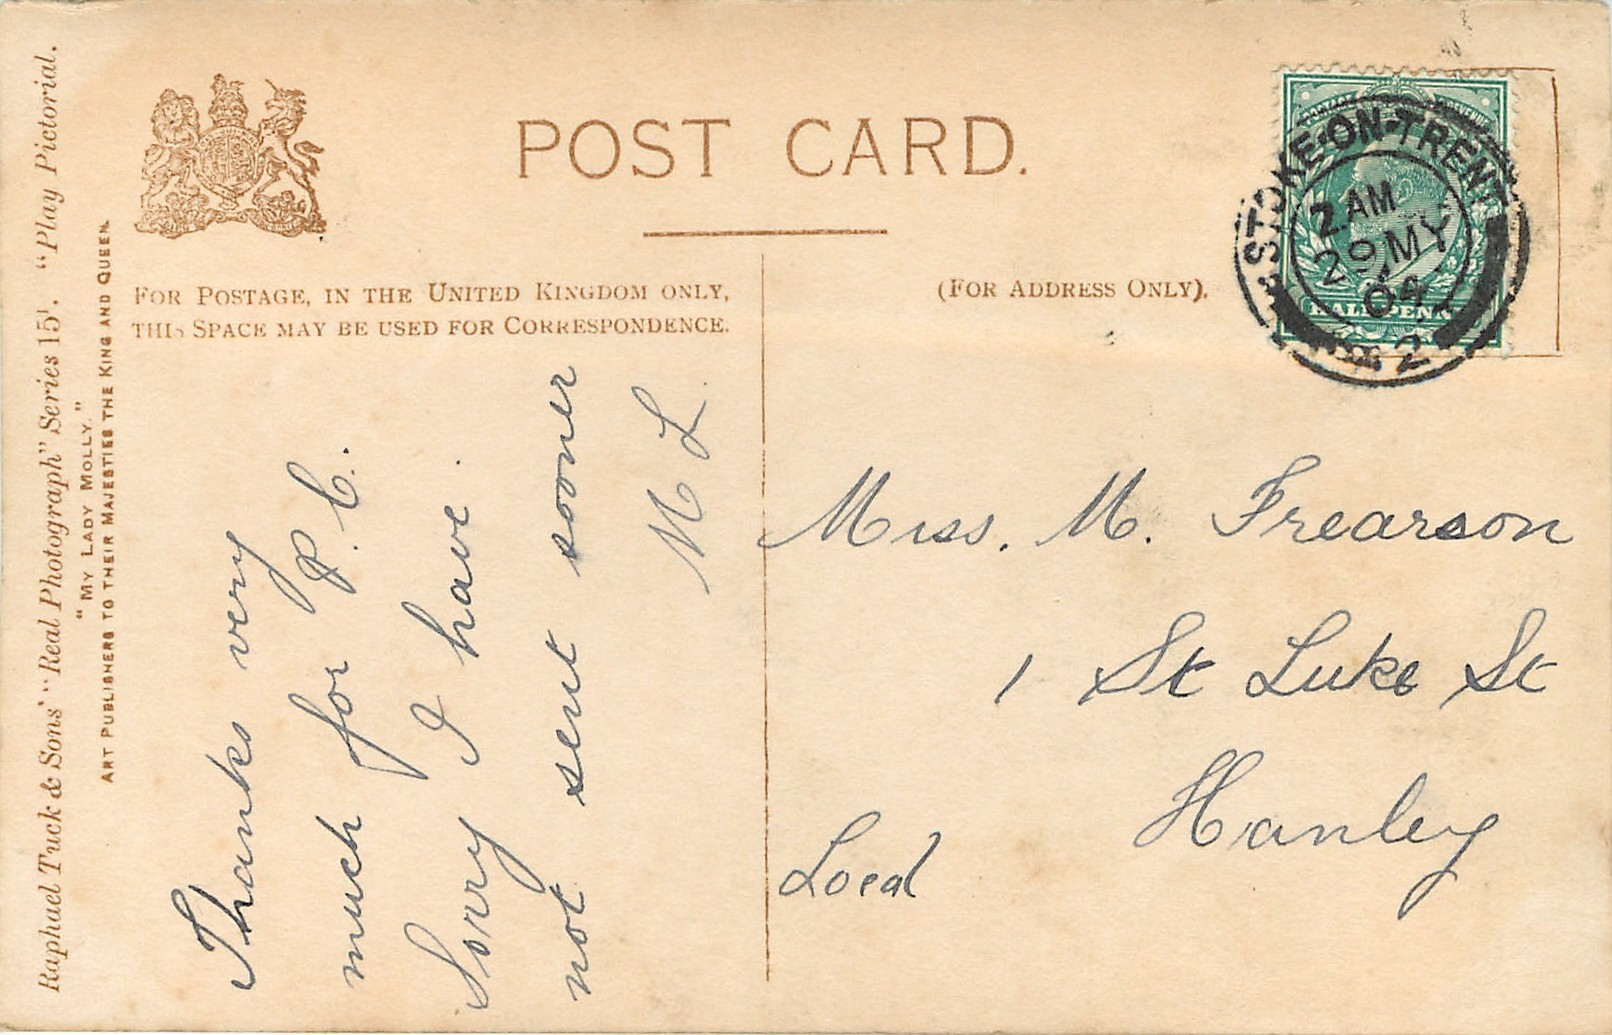 Raphael Tuck & Sons' "Real Photograph" Series 151. "Play Pictorial.
"MY LADY MOLLY."
ART PUBLISHERS TO THEIR MAJESTIES THE KING AND QUEEN.
POST CARD.
FOR POSTAGE, IN THE UNITED KINGDOM ONLY,
THIS SPACE MAY BE USED FOR CORRESPONDENCE.
(FOR ADDRESS ONLY).
POSTAGE REVENUE
HALFPENNY
STOKE-ON-TRENT
2 AM
29 MY
04
2
Thanks very
much for P.C.
Sorry I have
not sent sooner
M L
Miss. M. Frearson
1 St Luke St
Hanley
Local